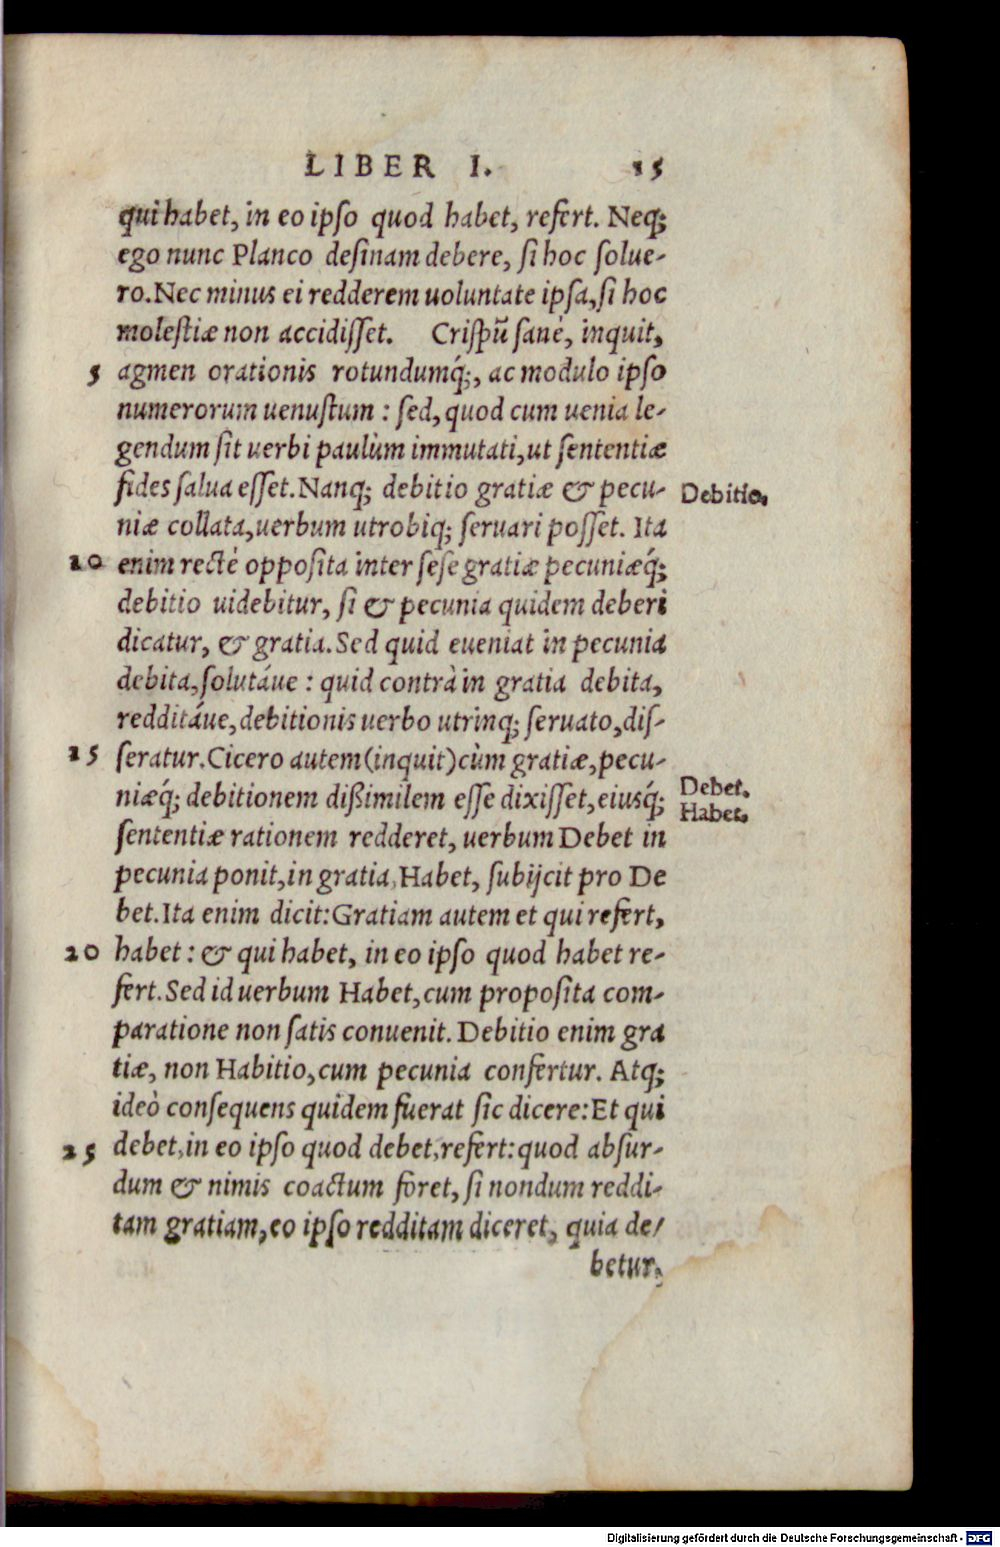 LIBER I. 15
qui habet, in eo ipso quod habet, refert. Neq;
ego nunc Planco desinam debere, si hoc solue-
ro. Nec minus ei redderem uoluntate ipsa, si hoc
molestiæ non accidisset. Crispũ sanè, inquit,
5 agmen orationis rotundumq́;, ac modulo ipso
numerorum uenustum : sed, quod cum uenia le-
gendum sit uerbi paulùm immutati, ut sententiæ
fides salua esset. Nanq; debitio gratiæ & pecu-
Debitio.
niæ collata, uerbum utrobiq; seruari posset. Ita
10 enim rectè opposita inter sese gratiæ pecuniæq́;
debitio uidebitur, si & pecunia quidem deberi
dicatur, & gratia. Sed quid eueniat in pecunia
debita, solutáue : quid contrà in gratia debita,
redditáue, debitionis uerbo utrinq; seruato, dis-
15 seratur. Cicero autem (inquit) cùm gratiæ, pecu-
niæq́; debitionem dißimilem esse dixisset, eiusq́;
Debet.
Habet.
sententiæ rationem redderet, uerbum Debet in
pecunia ponit, in gratia, Habet, subijcit pro De
bet. Ita enim dicit: Gratiam autem et qui refert,
20 habet : & qui habet, in eo ipso quod habet re-
fert. Sed id uerbum Habet, cum proposita com-
paratione non satis conuenit. Debitio enim gra
tiæ, non Habitio, cum pecunia confertur. Atq;
ideò consequens quidem fuerat sic dicere: Et qui
25 debet, in eo ipso quod debet, refert: quod absur-
dum & nimis coactum foret, si nondum reddi-
tam gratiam, eo ipso redditam diceret, quia de-
betur,
Digitalisierung gefördert durch die Deutsche Forschungsgemeinschaft - DFG